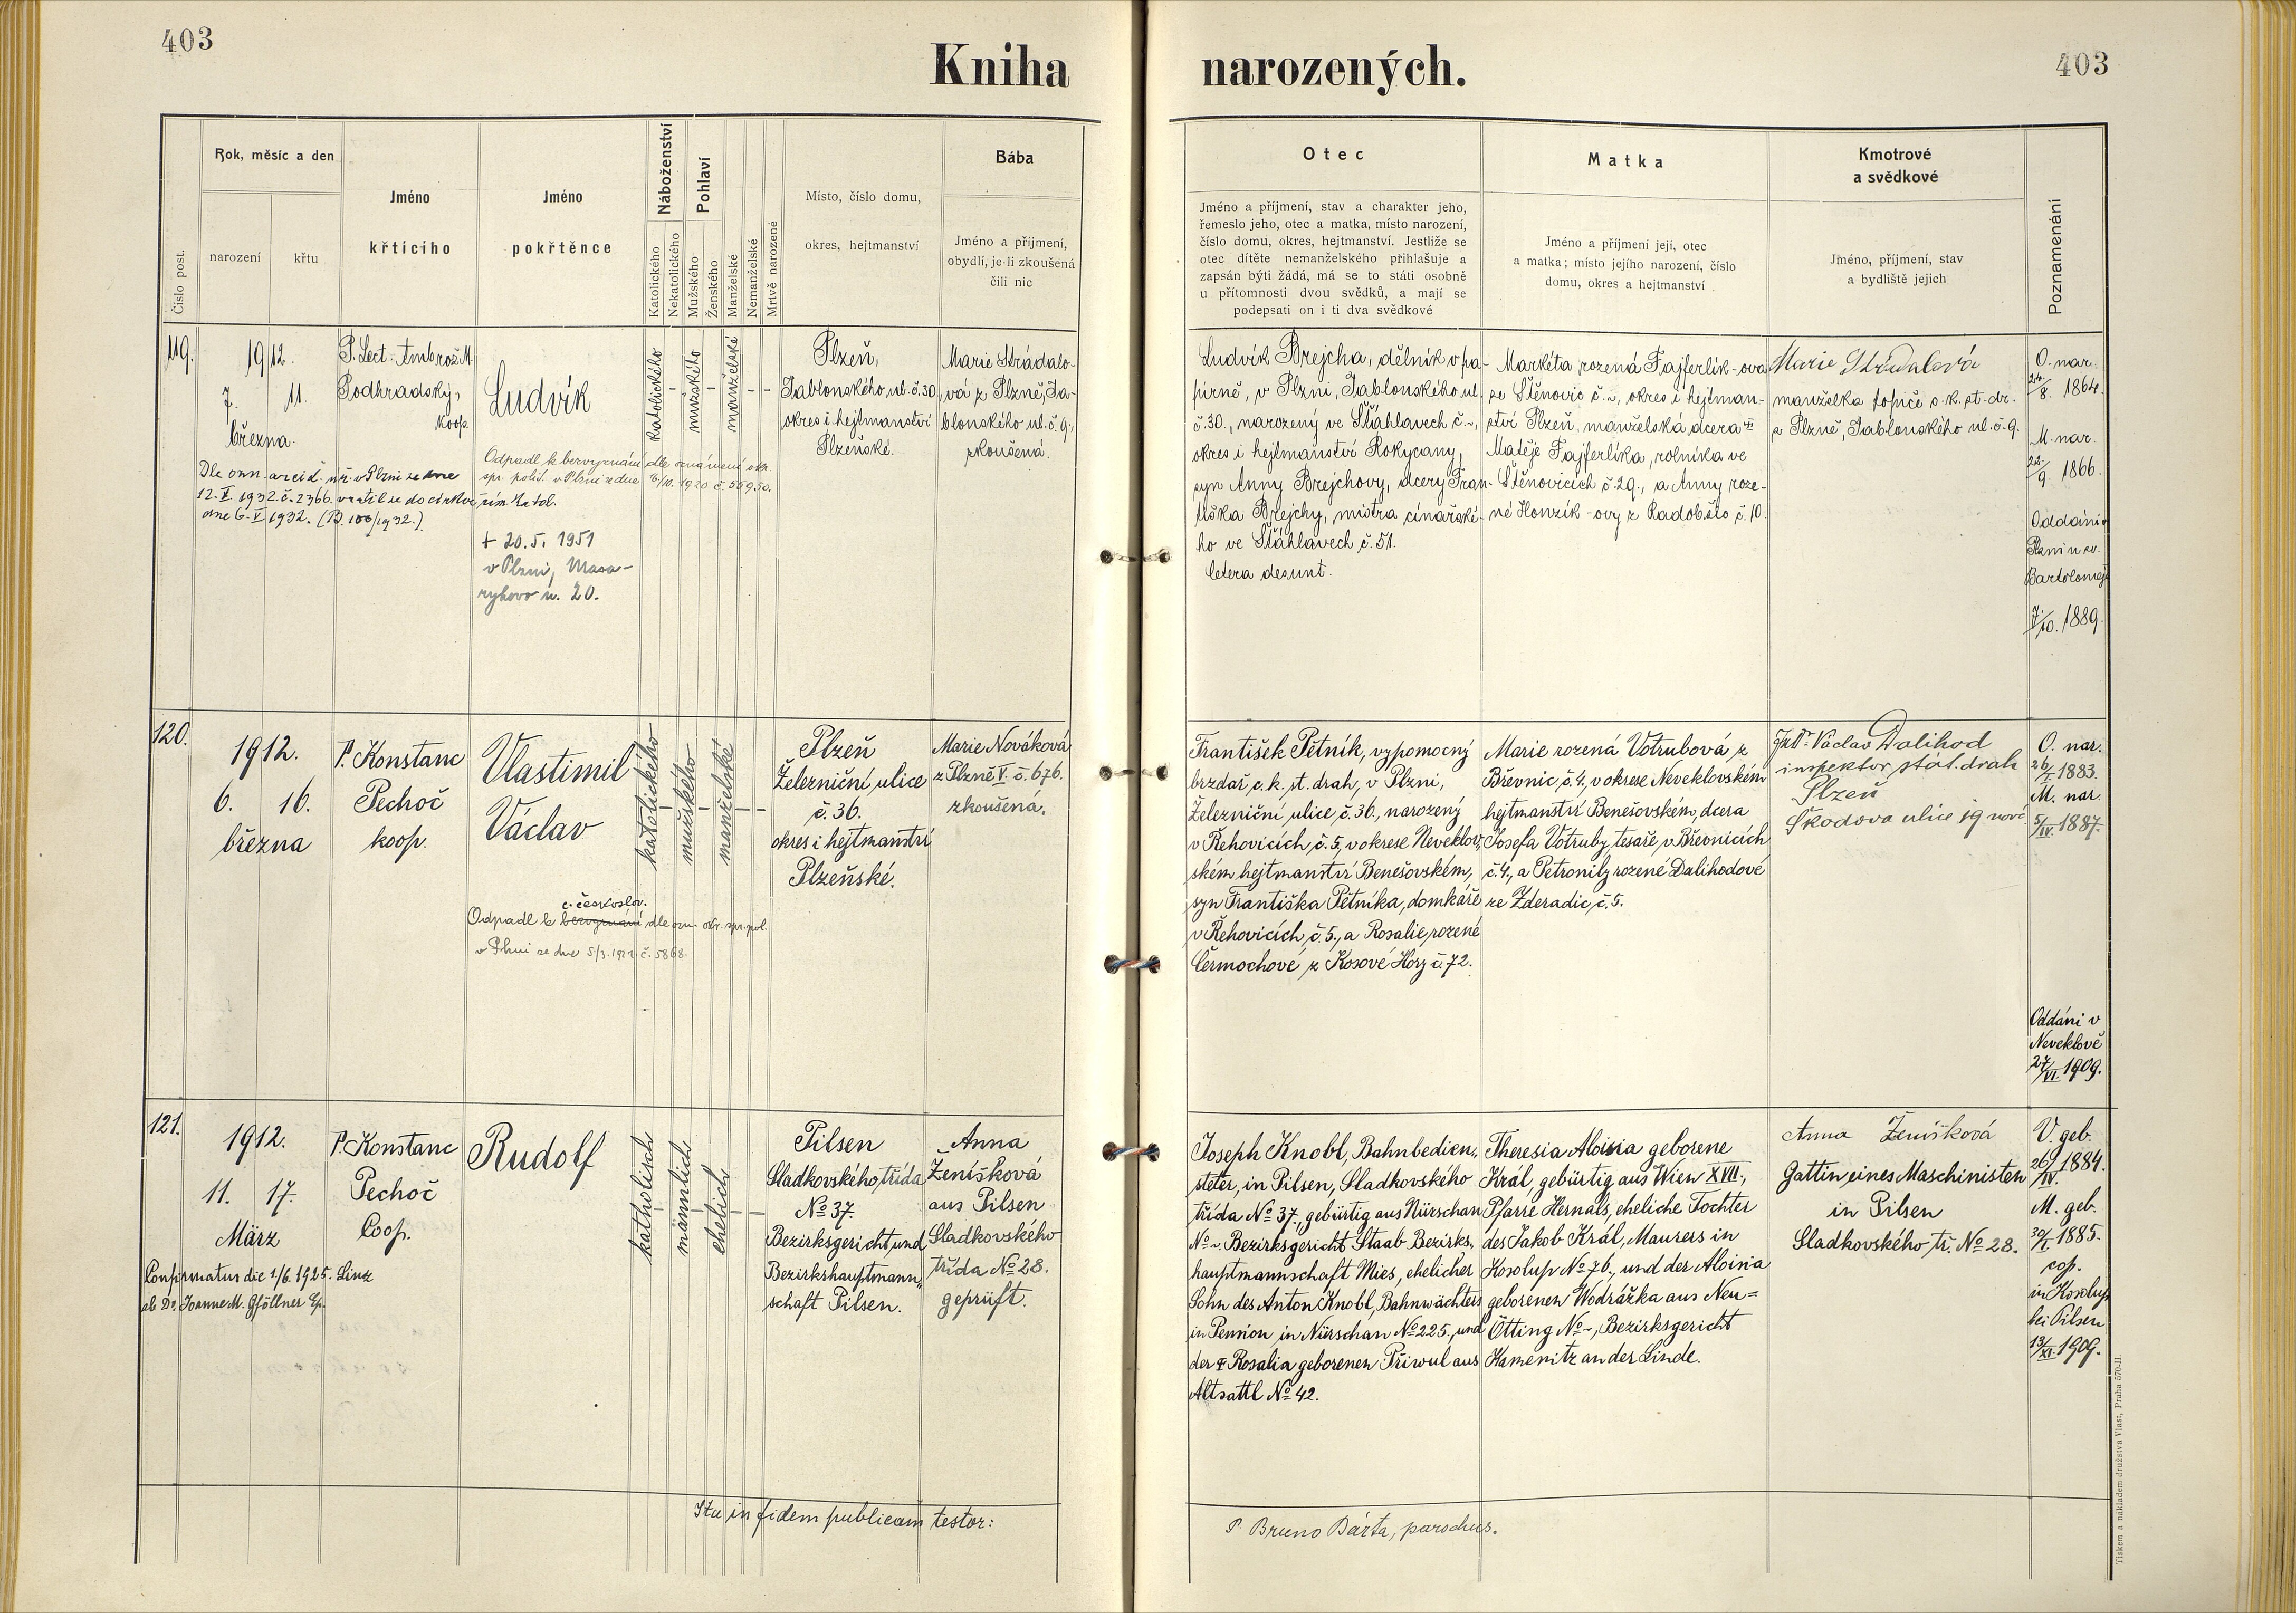 403
Kniha narozených.
403
Rok, měsíc a den
narození
křtu
Číslo post.
Jméno
křtícího
Jméno
pokřtěnce
Náboženství
Katolického
Nekatolického
Pohlaví
Mužského
Ženského
Manželské
Nemanželské
Mrtvě narozené
Místo, číslo domu,
okres, hejtmanství
Bába
Jméno a příjmení,
obydlí, je-li zkoušená
čili nic
Otec
Jméno a příjmení, stav a charakter jeho,
řemeslo jeho, otec a matka, místo narození,
číslo domu, okres, hejtmanství. Jestliže se
otec dítěte nemanželského přihlašuje a
zapsán býti žádá, má se to státi osobně
u přítomnosti dvou svědků, a mají se
podepsati on i ti dva svědkové
Matka
Jméno a příjmení její, otec
a matka; místo jejího narození, číslo
domu, okres a hejtmanství
Kmotrové
a svědkové
Jméno, příjmení, stav
a bydliště jejich
Poznamenání
119.
1912.
7. 11.
března.
P. Lect. Ambrož M.
Podhradský,
koop.
Ludvík
katolického
-
mužského
-
manželské
- -
Plzeň,
Jablonského ul. č. 30,
okres i hejtmanství
Plzeňské.
Marie Strádalo-
vá z Plzně, Ja-
blonského ul. č. 9.,
zkoušená.
Odpadl k bezvyznání dle oznámení okr.
spr. polit. v Plzni ze dne 1920 č. 55950.
Dle ozn. arcid. úř. v Plzni ze dne
12. V. 1932 č. 2366. vrátil se do církve řím. katol.
dne 6. V. 1932. (B. 100/1932.)
+ 20. 5. 1951
v Plzni, Masa-
rykovo n. 20.
Ludvík Brejcha, dělník v pa-
pírně, v Plzni, Jablonského ul.
č. 30., narozený ve Šťáhlavech č. ~,
okres i hejtmanství Rokycany,
syn Anny Brejchovy, dcery Fran-
tiška Brejchy, mistra cínařské-
ho ve Šťáhlavech č. 51.
Cetera desunt.
Markéta rozená Fajferlík-ova
ze Štěnovic č. ~, okres i hejtman-
ství Plzeň, manželská dcera
Matěje Fajferlíka, rolníka ve
Štěnovicích č. 29., a Anny roze-
né Honzík-ovy z Radobělo č. 10.
Marie Strádalová
manželka topiče c. k. st. dr.
z Plzně, Jablonského ul. č. 9.
O. nar.
24/8. 1864.
M. nar.
22/9. 1866.
Oddáni v
Plzni u sv.
Bartoloměje
7/10. 1889.
120.
1912.
6. 16.
března
P. Konstanc
Pechoč
koop.
Vlastimil
Václav
katolického
-
mužského
-
manželské
- -
Plzeň
Železniční ulice
č. 36.
okres i hejtmanství
Plzeňské.
Marie Nováková
z Plzně V. č. 676.
zkoušena.
c. českoslov.
Odpadl k bezvyznání dle ozn. okr. spr. pol.
v Plzni ze dne 5/3. 1921. č. 5868.
František Pětník, vypomocný
brzdař c. k. st. drah, v Plzni,
Železniční ulice č. 36., narozený
v Řehovicích č. 5, v okrese Neveklov-
ském hejtmanství Benešovském,
syn Františka Pětníka, domkáře
v Řehovicích, č. 5., a Rosalie rozené
Čermochové z Kosové Hory č. 72.
Marie rozená Votrubová z
Břevnic č. 4., v okrese Neveklovském
hejtmanství Benešovském, dcera
Josefa Votruby, tesaře v Břevnicích
č. 4., a Petronily rozené Dalihodové
ze Zderadic č. 5.
JUDr. Václav Dalihod
inspektor stát. drah
Plzeň
Škodova ulice 19 nové
O. nar.
26/I. 1883.
M. nar.
5/IV. 1887.
Oddáni v
Neveklově
27/VI. 1909.
121.
1912.
11. 17.
März
P. Konstanc
Pechoč
Coop.
Rudolf
katholisch
-
männlich
-
ehelich
- -
Pilsen
Sladkovského třída
No 37.
Bezirksgericht und
Bezirkshauptmann-
schaft Pilsen.
Anna
Ženíšková
aus Pilsen
Sladkovského
třída No 28.
geprüft.
Confirmatus die 1/6. 1925. Linz
ab Dr. Joanne M. Gföllner Ep.
Joseph Knobl, Bahnbedien-
steter, in Pilsen, Sladkovského
třída No 37., gebürtig aus Nürschan
No ~. Bezirksgericht Staab Bezirks-
hauptmannschaft Mies, ehelicher
Sohn des Anton Knobl, Bahnwächters
in Pension in Nürschan No 225., und
der + Rosalia geborenen Přiwul aus
Altsattl No 42.
Theresia Aloisia geborene
Král, gebürtig aus Wien XVII.,
Pfarre Hernals, eheliche Tochter
des Jakob Král, Maurers in
Kosolup No 76., und der Aloisia
geborenen Wodrážka aus Neu=
Ötting No ~, Bezirksgericht
Kamenitz an der Linde.
Anna Ženíšková
Gattin eines Maschinisten
in Pilsen
Sladkovského tř. No 28.
V. geb.
26/IV. 1884.
M. geb.
30/I. 1885.
cop.
in Kosolup
bei Pilsen
13/XI. 1909.
Ita in fidem publicam testor:
P. Bruno Bárta, parochus.
Tiskem a nákladem družstva Vlast, Praha 570-II.